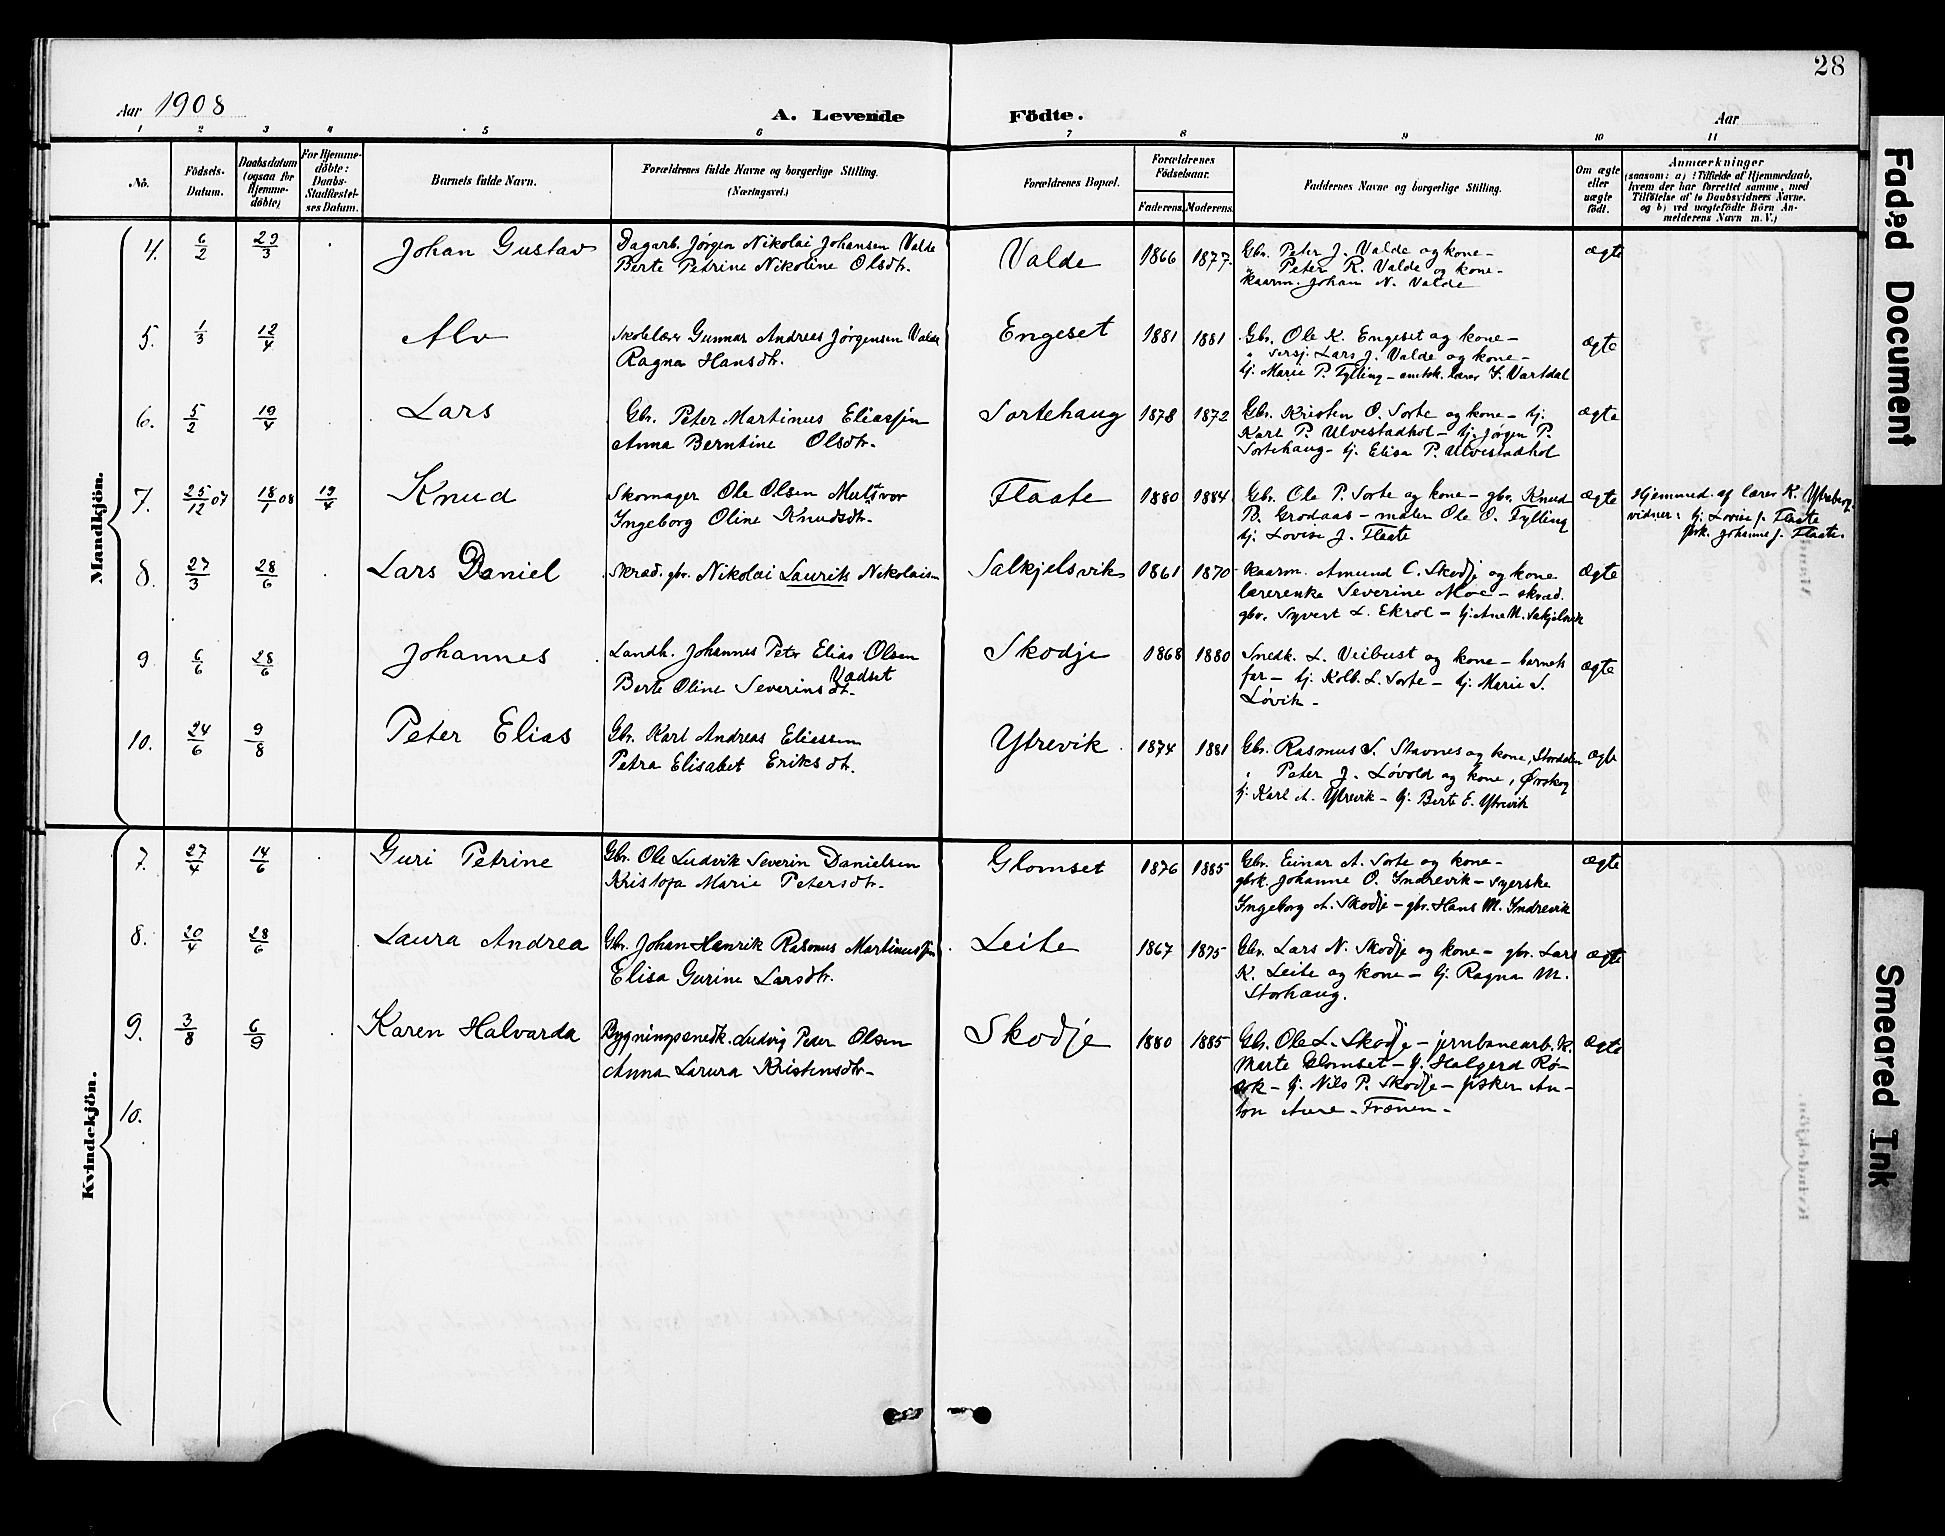 28
Aar 1908
A. Levende Födte.
Aar
1 2 3 4 5 6 7 8 9 10 11
No.
Födsels-Datum.
Daabsdatum (ogsaa for Hjemme-döbte)
For Hjemme-döbte: Daabs-Stadfæstel-ses Datum.
Barnets fulde Navn.
Forældrenes fulde Navne og borgerlige Stilling. (Næringsvei.)
Forældrenes Bopæl.
Forældrenes Födselsaar.
Faderens. Moderens.
Faddernes Navne og borgerlige Stilling.
Om ægte eller uægte født.
Anmærkninger
(saasom: a) i Tilfælde af Hjemmedaab,
hvem der har forrettet samme, med
Tilföielse af to Daabsvidners Navne.
og b) ved uægtefödte Börn An-
melderens Navn m. V.)
Mandkjön.
4. 6/2 29/3 Johan Gustav
Dagarb. Jørgen Nikolai Johansen Valde
Berte Petrine Nikoline Olsdtr.
Valde 1866 1877.
Gbr. Peter J. Valde og kone -
" Peter R. Valde og kone -
kaarm. Johan N. Valde
ægte
5. 1/3 12/4 Alv
Skolelærer Gunnar Andreas Jørgensen Valde
Ragna Hansdtr.
Engeset 1881 1881
Gbr. Ole K. Engeset og kone -
" sersj. Lars J. Valde og kone -
tj. Marie P. Fylling - amtsk. lærer J. Vartdal
ægte
6. 5/2 19/4 Lars
Gbr. Peter Martinus Eliassen
Anna Berntine Olsdtr.
Sortehaug 1878 1872
Gbr. Kristen O. Sorte og kone - tj.
Karl P. Ulvestadhol - tj. Jørgen P.
Sortehaug - tj. Elisa P. Ulvestadhol
ægte
7. 25/12 07 18/1 08 19/4 Knud
Skomager Ole Olsen
Ingeborg Oline Knudsdtr.
Flaate 1880 1884
Gbr. Ole P. Sorte og kone - gbr. Knud
B. Grodaas - maler Ole O. Fylling
tj. Lovise J. Flaate
ægte
Hjemmed. af lærer K. Ytreberg.
vidner: tj. Lovise J. Flaate
fisk. Johanne J. Flaate.
8. 27/3 28/6 Lars Daniel
Skræd. gbr. Nikolai Laurits Nikolaisen
Salkjelsvik 1861 1870
kaarm. Amund C. Skodje og kone
lærerenke Severine Moe - skræd.
gbr. Syvert L. Ekrol - tj. Ane M. Salkjelsvik
ægte
9. 6/6 28/6 Johannes
Landh. Johannes Peter Elias Olsen
Vadset
Berte Oline Severinsdtr.
Skodje 1868 1880
Snedk. L. Veibust og kone - barnets
far - tj. Kolb. L. Sorte - tj. Marie S.
Løvik -
ægte
10. 24/6 9/8 Peter Elias
Gbr. Karl Andreas Eliassen
Petra Elisabet Eriksdtr.
Ytrevik. 1874 1881
Gbr. Rasmus S. Stavnes og kone, Stordalen
" Peter J. Løvold og kone, Ørskog
tj. Karl A. Ytrevik - tj. Berte E. Ytrevik
ægte
Kvindekjön.
7. 27/4 14/6 Guri Petrine
Gbr. Ole Ludvik Severin Danielsen
Kristofa Marie Petersdtr.
Glomset 1876 1885
Gbr. Einar A. Sorte og kone -
gbrk. Johanne O. Indrevik - syerske
Ingeborg A. Skodje - gbr. Hans M. Indrevik
ægte
8. 20/4 28/6 Laura Andrea
Gbr. Johan Henrik Rasmus Martinussen
Elisa Gurine Larsdtr.
Leite 1867 1875
Gbr. Lars N. Skodje og kone - gbr. Lars
K. Leite og kone - tj. Ragna M.
Storhaug.
ægte
9. 3/8 6/9 Karen Halvarda
Bygningssnedk. Ludvig Peder Olsen
Anna Larura Kristensdtr.
Skodje 1880 1885
Gbr. Ole L. Skodje - jernbanearb. K.
Marte Glomset - tj. Halgerd Rø-
sok - tj. Nils P. Skodje - fisker An-
ton Aure - Frænen -
ægte
10.
Faded Document
Smeared Ink